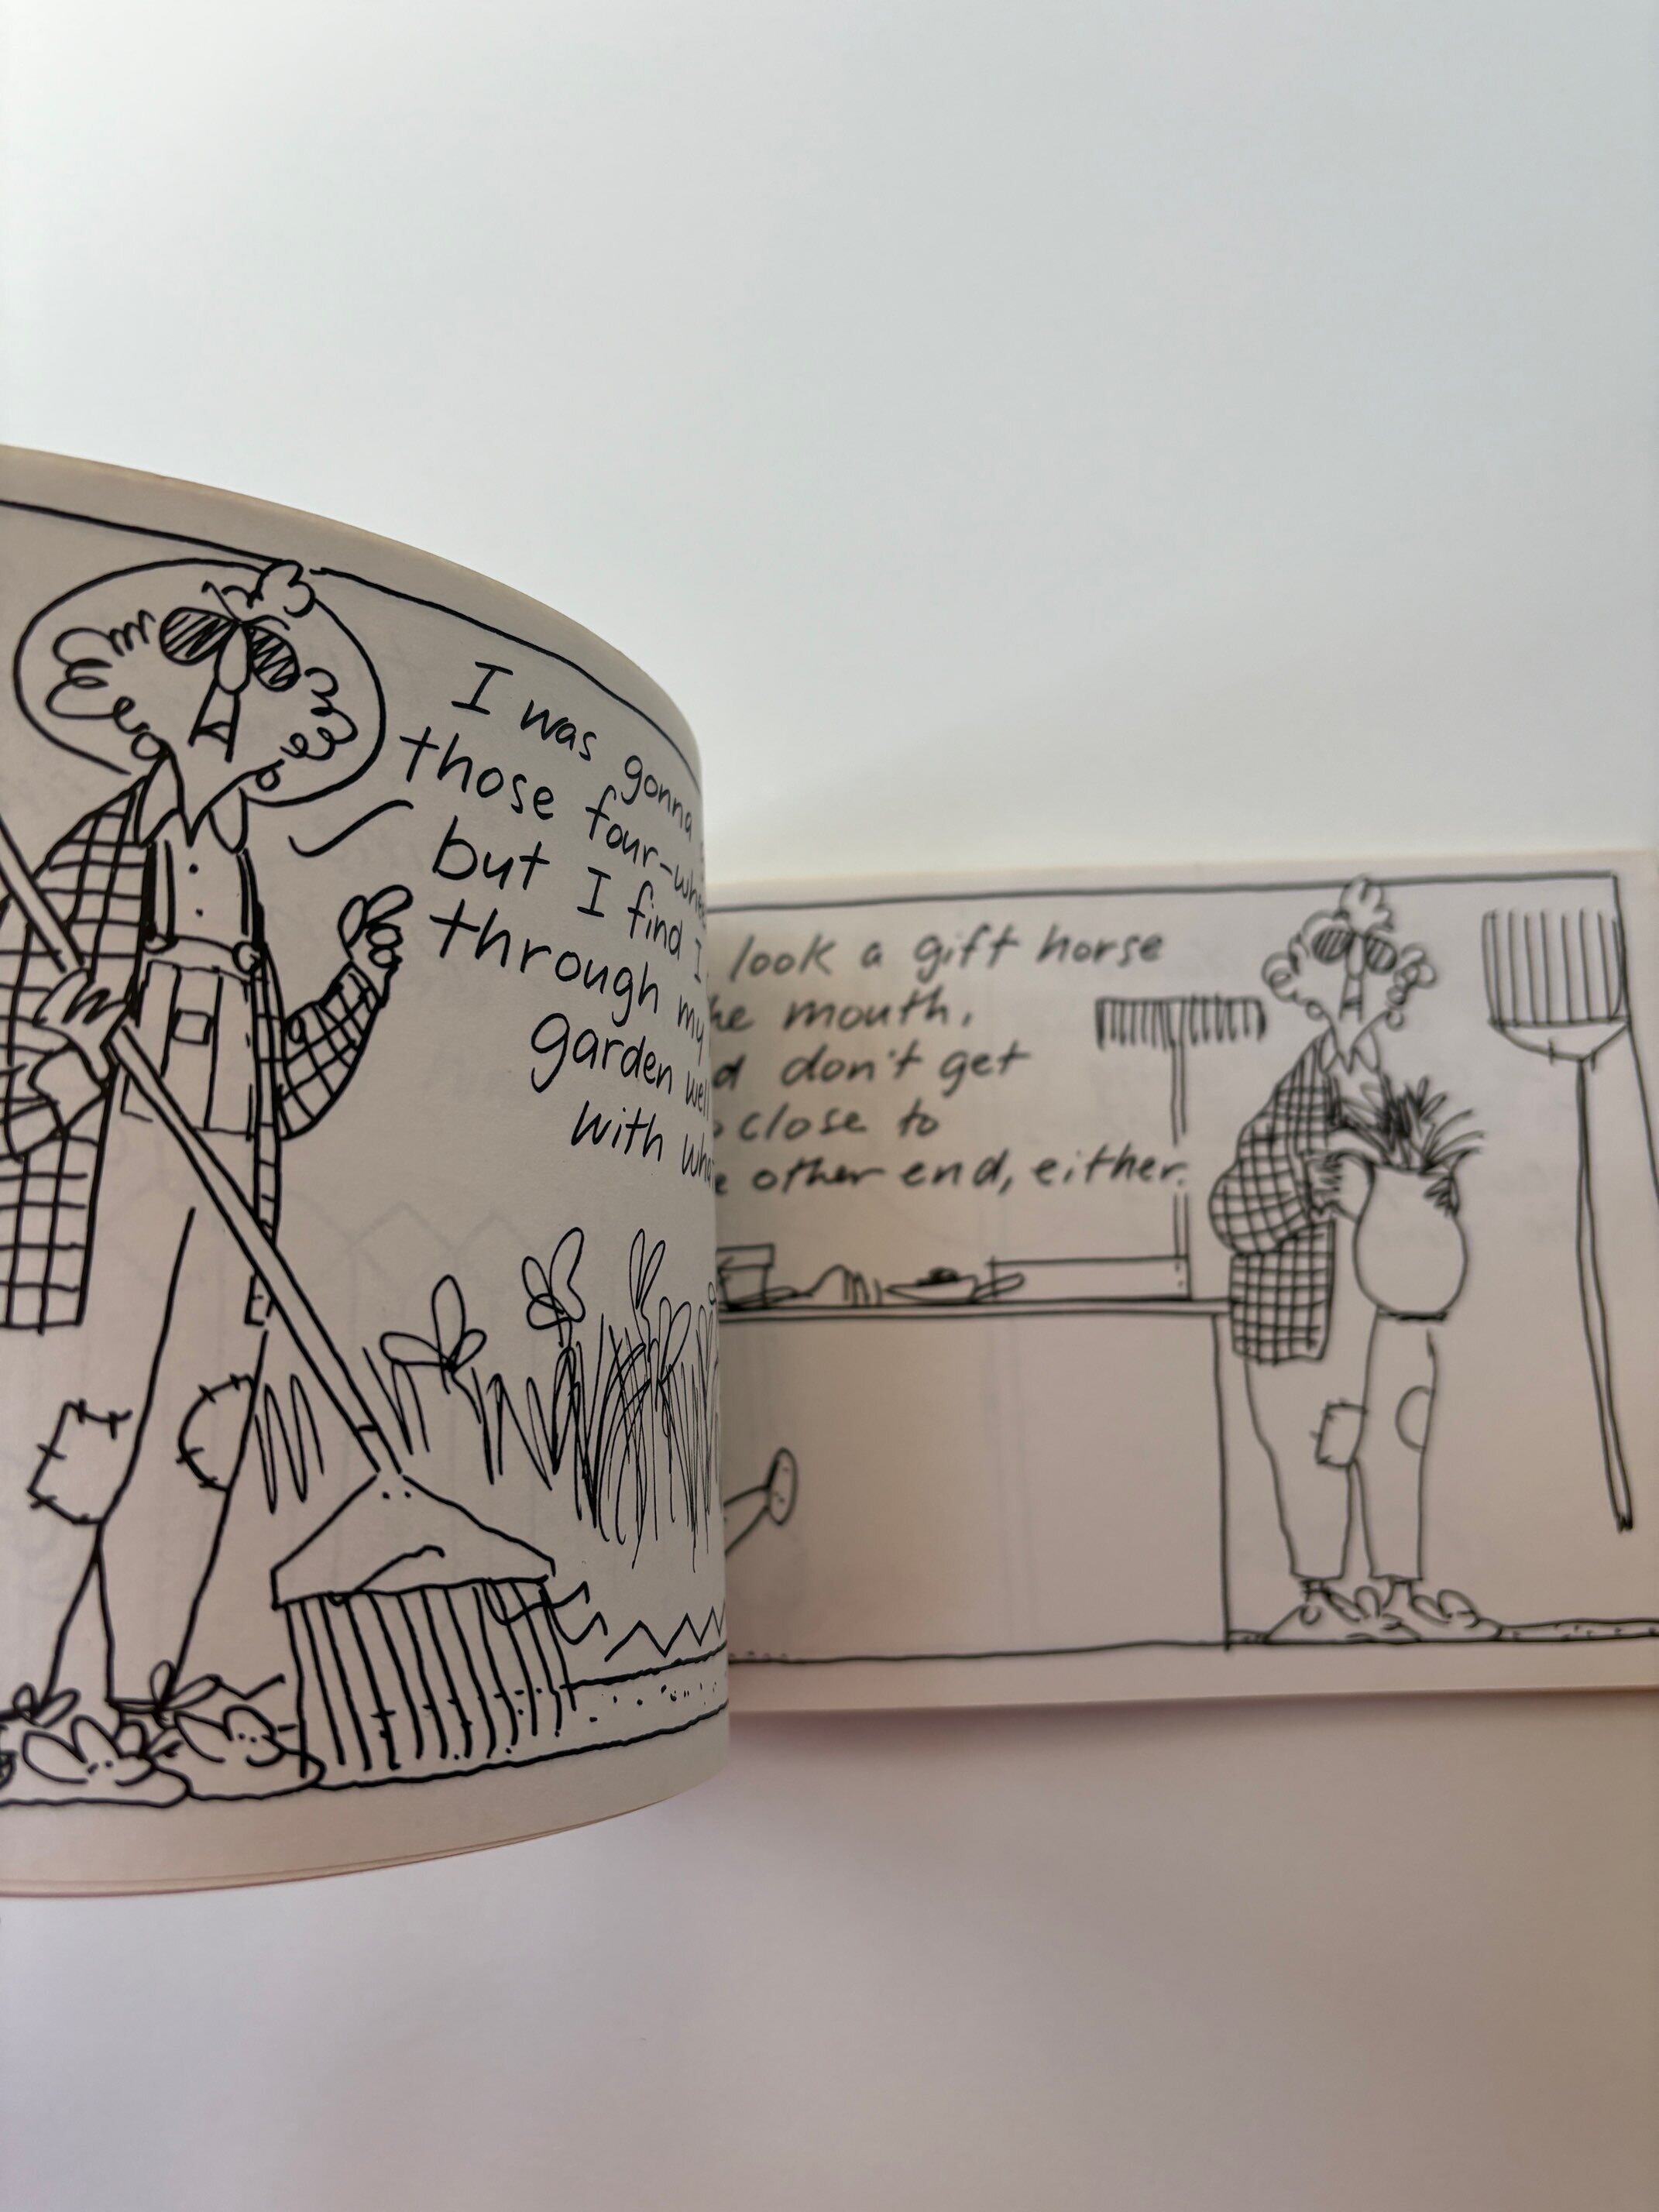 I was gonna
those four-whe
but I find I
through my
garden well
with wha
look a gift horse
he mouth,
d don't get
o close to
e other end, either.